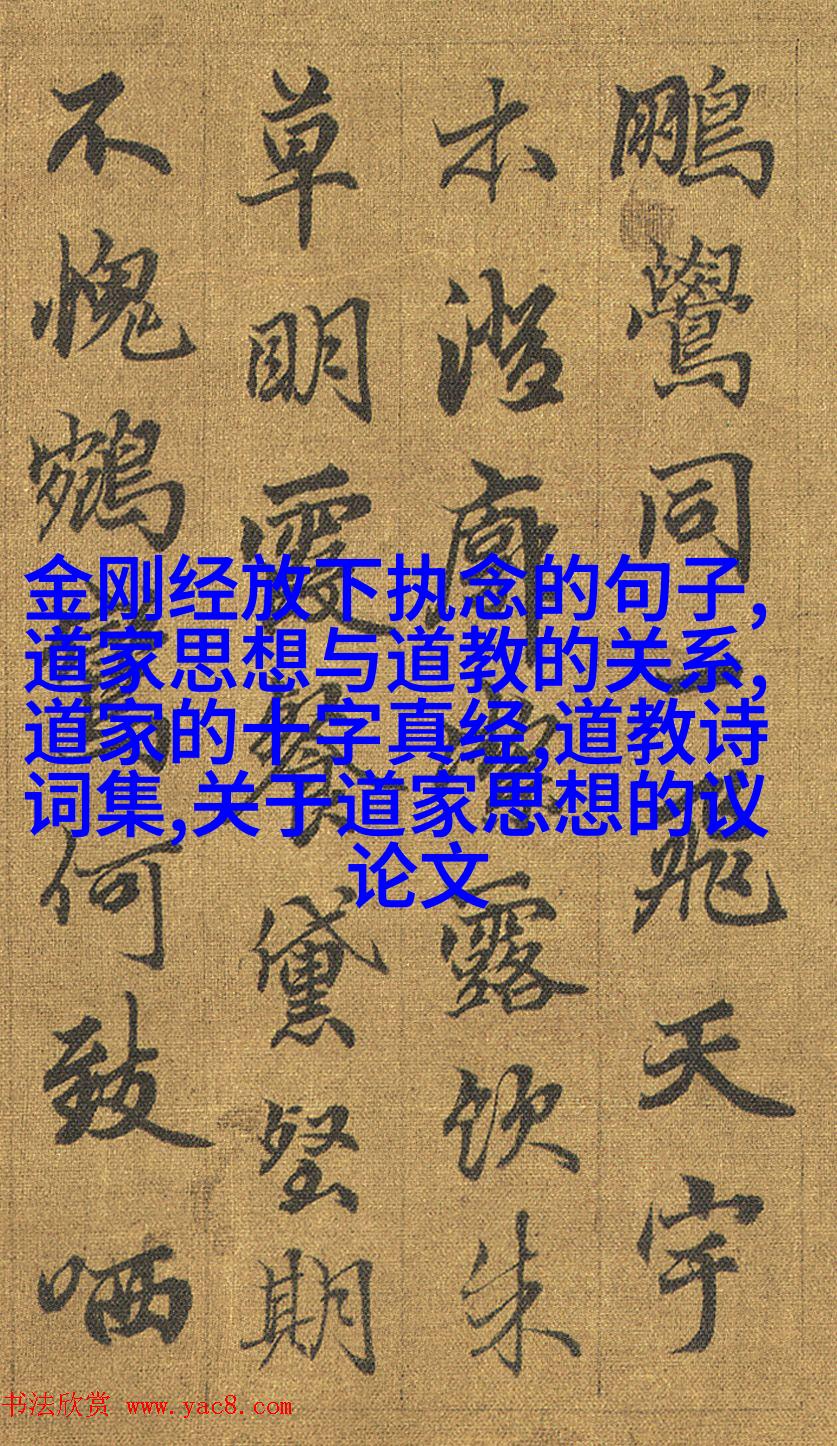 鵬鷽同一飛天宇
廓露飲朱
草明霞餐黛堅期
不愧鶴何致哂
金刚经放下执念的句子,
道家思想与道教的关系,
道家的十字真经,道教诗
词集,关于道家思想的议
论文
书法欣赏 www.yac8.com